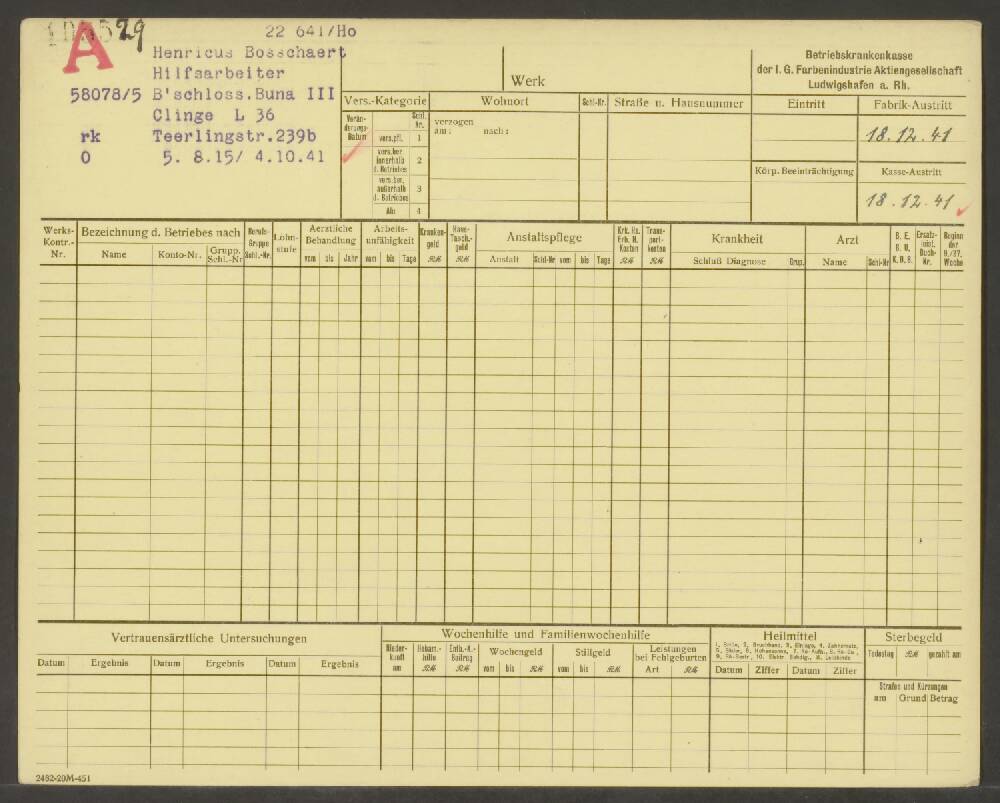 29
22 641/Ho
A
Henricus Bosschaert
Hilfsarbeiter
58078/5 B'schloss.Buna III
Clinge L 36
rk Teerlingstr.239b
O 5. 8.15/ 4.10.41
Werk
Betriebskrankenkasse
der I. G. Farbenindustrie Aktiengesellschaft
Ludwigshafen a. Rh.
Vers.-Kategorie Wohnort Schl-Nr. Straße u. Hausnummer Eintritt Fabrik-Austritt
Verän-
derungs-
Datum
Schl.
Nr.
vers.pfl. 1
vers.ber.
innerhalb
d. Betriebes 2
vers.ber.
außerhalb
d. Betriebes 3
Abt 4
verzogen
am: nach:
18.12.41
Körp. Beeinträchtigung Kasse-Austritt
18.12.41
Werks-
Kontr.-
Nr.
Bezeichnung d. Betriebes nach
Name Konto-Nr. Grupp.
Schl.-Nr
Berufs-
Gruppe
Schl.-Nr.
Lohn-
stufe
Aerztliche
Behandlung
vom bis Jahr
Arbeits-
unfähigkeit
vom bis Tage
Kranken-
geld
RM
Haus-
Tasch.-
geld
RM
Anstaltspflege
Anstalt Schl-Nr vom bis Tage
Krk. Hs.
Erh. H.
Kosten
RM
Trans-
port-
kosten
RM
Krankheit
Schluß Diagnose Grup.
Arzt
Name Schl-Nr
B. E.
B. U.
K. D. B.
Ersatz-
leist.
Buch-
Nr.
Beginn
der
9./27.
Woche
Vertrauensärztliche Untersuchungen
Datum Ergebnis Datum Ergebnis Datum Ergebnis
Wochenhilfe und Familienwochenhilfe
Nieder-
kunft
am
Hebam.-
hilfe
RM
Entb.-K.-
Beitrag
RM
Wochengeld
vom bis RM
Stillgeld
vom bis RM
Leistungen
bei Fehlgeburten
Art RM
Heilmittel
Datum Ziffer Datum Ziffer
Sterbegeld
Todestag RM gezahlt am
Strafen und Kürzungen
am Grund Betrag
2482-20M-451